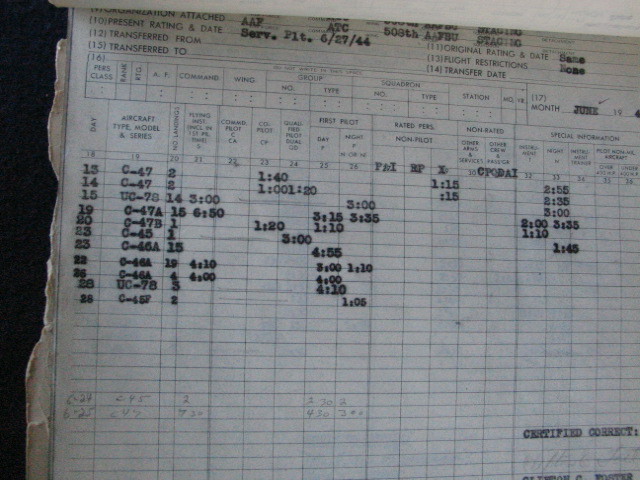 (9) ORGANIZATION ATTACHED AAF ATC STAGING
(10) PRESENT RATING & DATE Serv. Plt. 6/27/44 508th AAFBU STAGING
(12) TRANSFERRED FROM (11) ORIGINAL RATING & DATE Same
(15) TRANSFERRED TO (13) FLIGHT RESTRICTIONS None
(14) TRANSFER DATE
(16)
PERS CLASS RANK RTG. A. F. COMMAND WING GROUP NO. TYPE SQUADRON NO. TYPE STATION MO. YR. (17) MONTH JUNE 19 4
DAY AIRCRAFT TYPE, MODEL & SERIES NO. LANDINGS FLYING INST. (INCL. IN 1ST PIL. TIME) S COMMD. PILOT C CA CO-PILOT CP QUALIFIED PILOT DUAL QD FIRST PILOT DAY P NIGHT P RATED PERS. NON-PILOT NON-RATED OTHER ARMS & SERVICES OTHER CREW & PASS'GR SPECIAL INFORMATION INSTRUMENT I NIGHT N INSTRUMENT TRAINER PILOT NON-MIL. AIRCRAFT
18 19 20 21 22 23 24 25 26 30 32 33 34 35 36
P&I BP X CPODAI
13 C-47 2 1:40
14 C-47 2 1:00 1:20 1:15 2:55
15 UC-78 14 3:00 3:00 :15 2:35
19 C-47A 15 6:50 3:15 3:35 3:00
20 C-47B 1 1:20 1:10 2:00 3:35
23 C-45 1 3:00 1:10
23 C-46A 15 4:55 1:45
22 C-46A 19 4:10 3:00 1:10
26 C-46A 4 4:00 4:00
28 UC-78 3 4:10
28 C-45F 2 1:05
6-24 C45 2 2 30 2
6-25 C47 7 30 4 30 3 00
CERTIFIED CORRECT:
CLINTON C. FOSTER